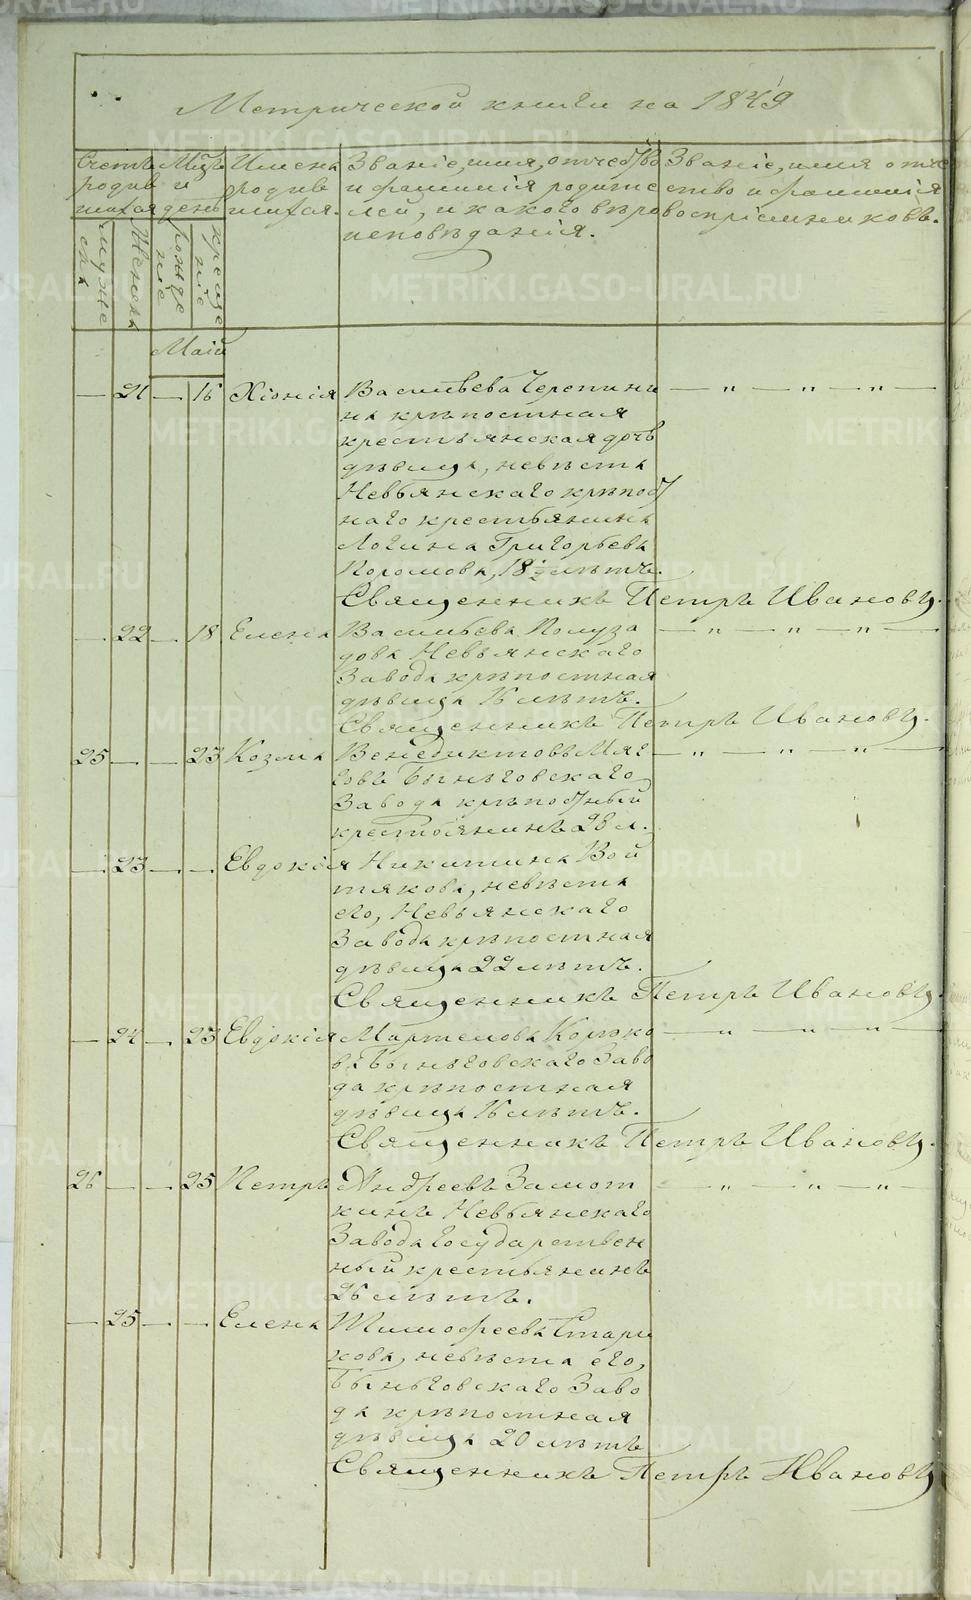 Метрической книги на 1849
Счетъ родив шихся
Мцъ и день
Имена родив шихся.
Званіе, имя, отчество и фамилія родите лей, и какого веро исповѣданія.
Званіе, имя отче ство и фамилія воспріемниковъ.
муже ска
Женска
рожде ніе
креще ніе
Маій
— 21 — 16 Хіонія Васильева Черепини — „ — „ — „ —
на крѣпостная
крестьянская дочь
дѣвица, невѣста
Невьянскаго крѣпост
наго крестьянина
Логина Григорьева
18 ½ лѣтъ.
Священникъ Петръ Ивановъ.
— 22 — 18 Елена Васильева Полуза — „ — „ — „ —
дова Невьянскаго
Завода крѣпостная
дѣвица 16 лѣтъ.
Священникъ Петръ Ивановъ.
25 — — 23 Козма Венедиктовъ Мяг — „ — „ — „ —
ковъ Быньговскаго
Завода крѣпостный
крестьянинъ 28 л.
— 23 — — Евдокія Никитина Вой
тякова, невѣста
его, Невьянскаго
Завода крѣпостная
дѣвица 22 лѣтъ.
Священникъ Петръ Ивановъ.
— 24 — 23 Евдокія Мартемова — „ — „ — „ —
ва Быньговскаго Заво
да крѣпостная
дѣвица 16 лѣтъ.
Священникъ Петръ Ивановъ.
26 — — 25 Петръ Андреевъ Замот — „ — „ — „ —
кинъ Невьянскаго
Завода Государствен
ный крестьянинъ
26 лѣтъ.
— 25 — — Елена Тимофеева Стари
кова, невѣста его,
Быньговскаго Заво
да крѣпостная
дѣвица 20 лѣтъ
Священникъ Петръ Ивановъ
METRIKI.GASO-URAL.RU